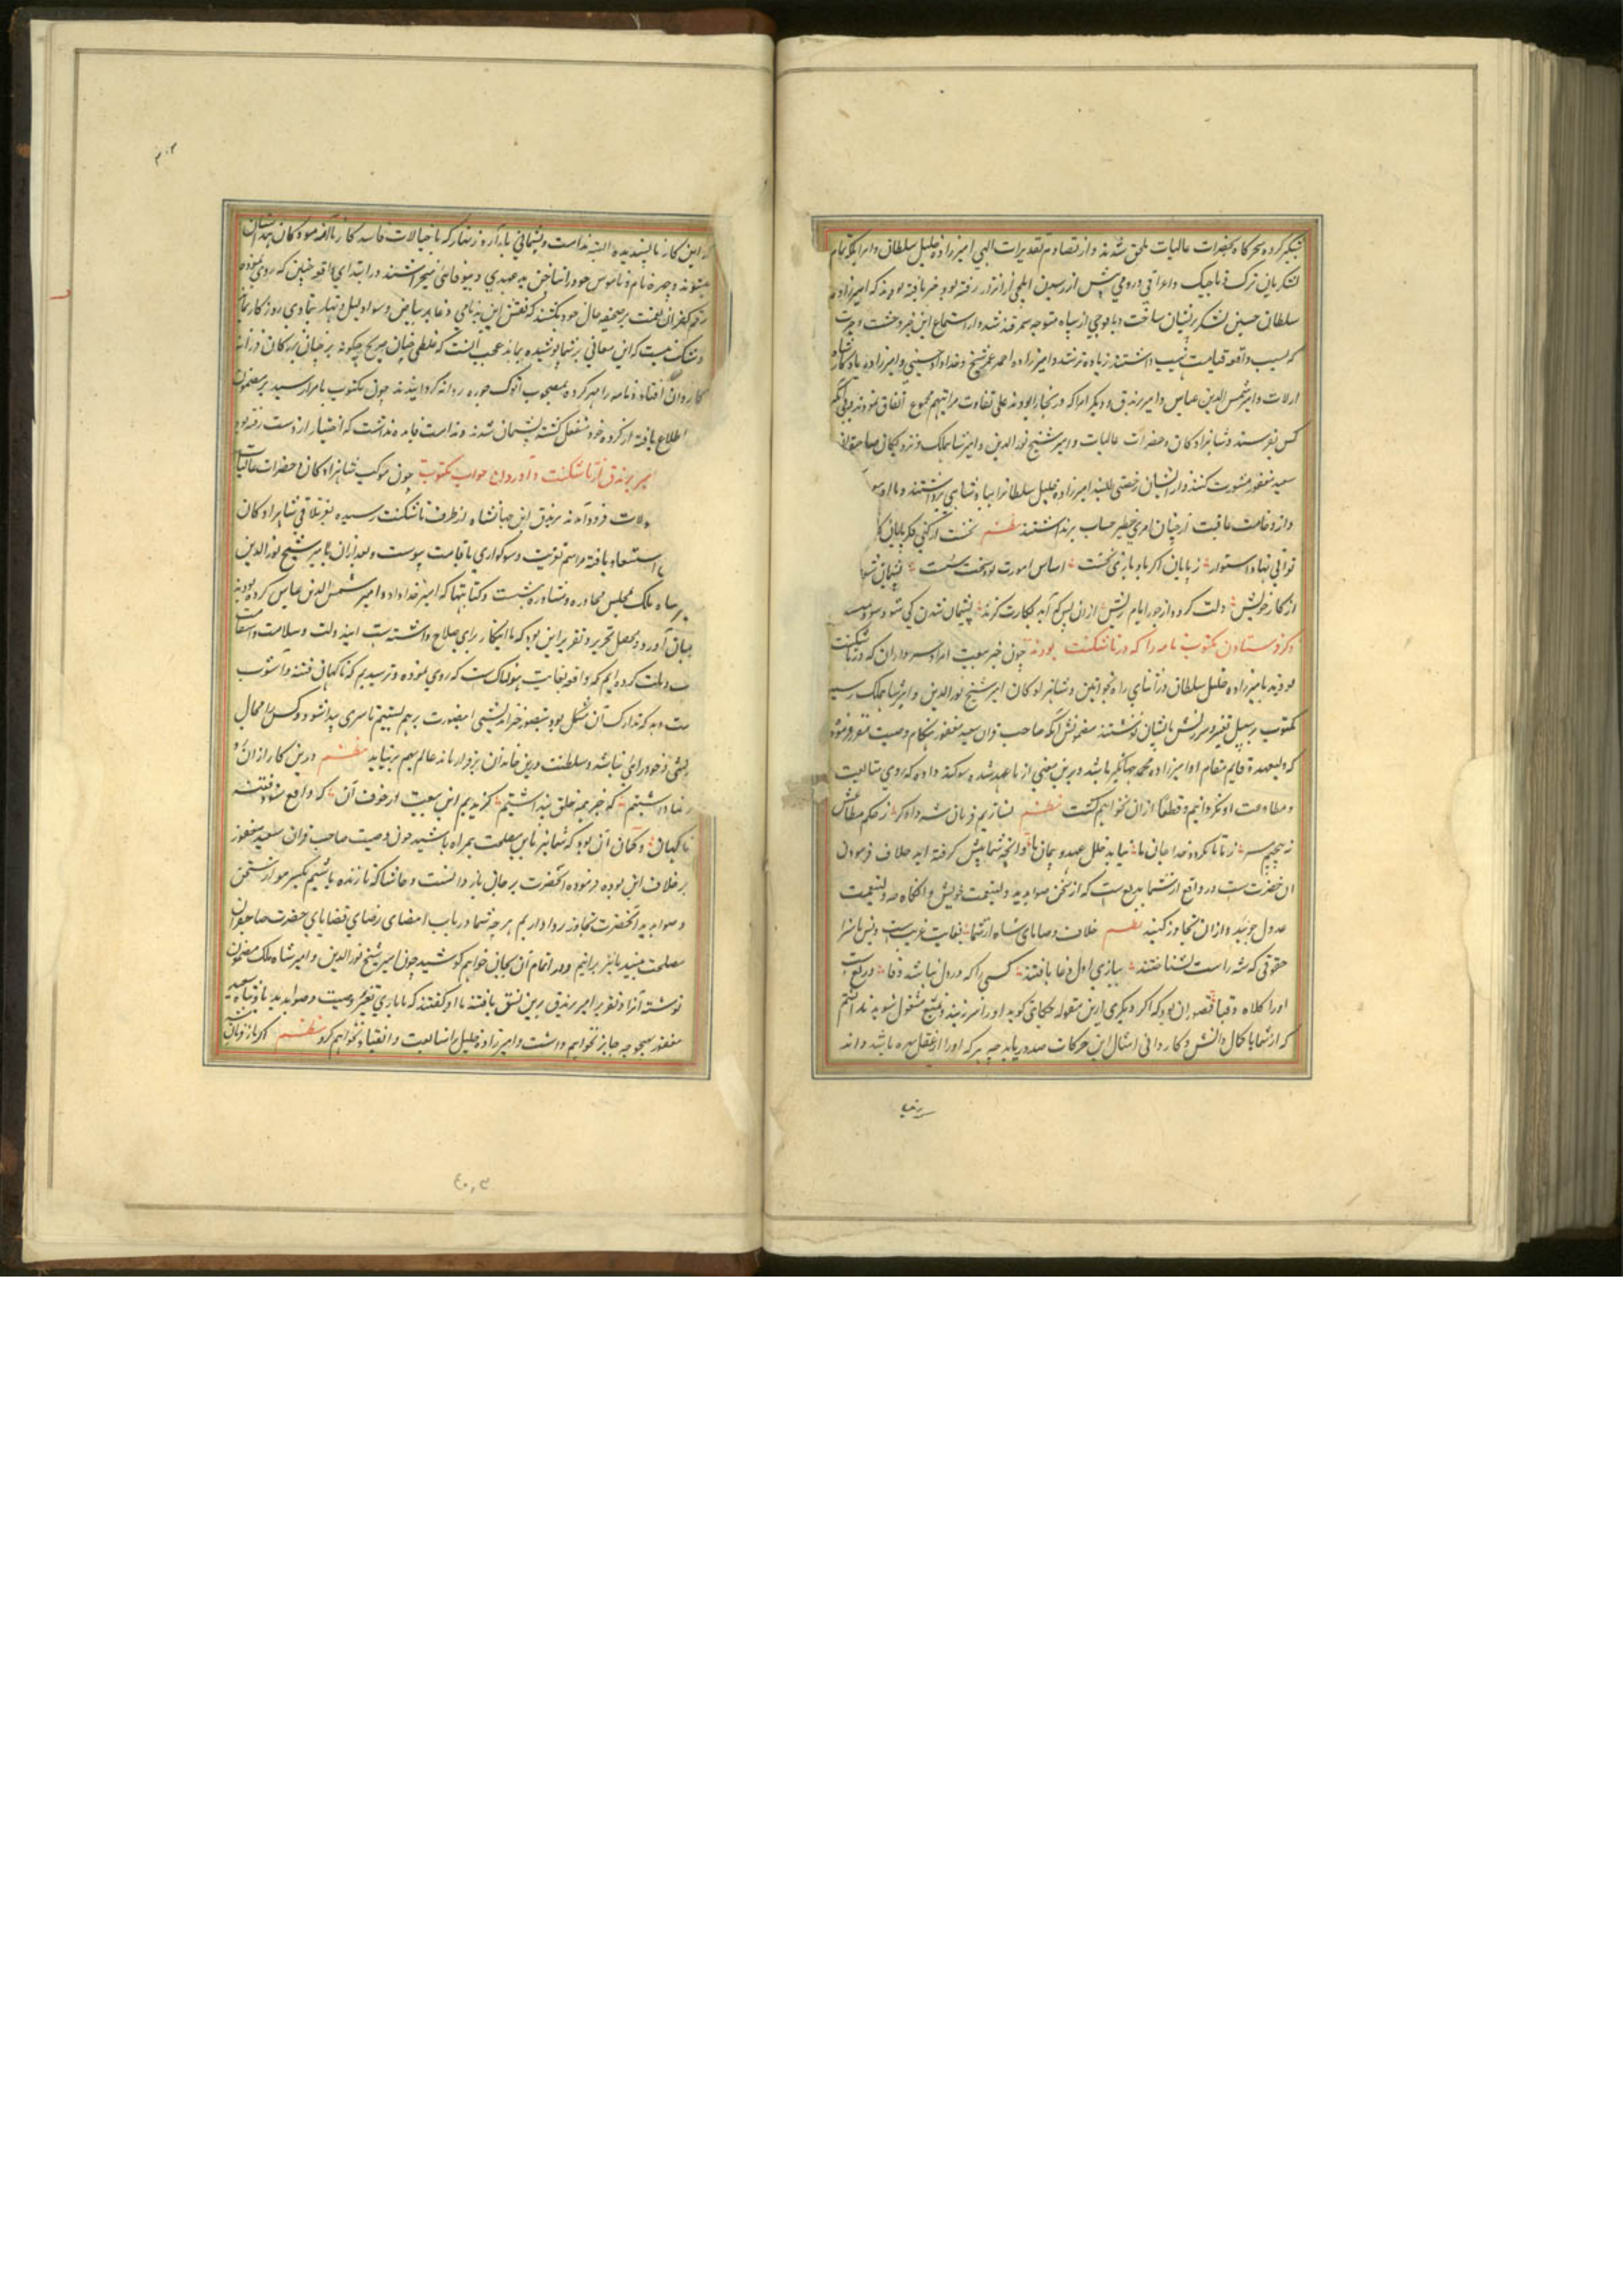 شبگیر کرده سحرگاه بحضرات عالیات ملحق شدند و از تصادم تقدیرات الهی امیرزاده خلیل سلطان و امرا که تمام
لشکریان ترک و تاجیک و اعراقی و رومی پیش از رسیدن ایلچی از انزار رفته بود و خبر یافته بودند که امیرزاده
سلطان حسین لشکر پریشان ساخت و با فوجی از سپاه متوجه سمرقند شد و از استماع این خبر وحشت و حیرت
که بسبب واقعه قیامت نهیب داشتند زیاده تر شد و امیرزاده احمد عمر شیخ و خداداد حسینی و امیرزاده یادگار شاه
ارلات و امیر شمس الدین عباس و امیر برندق و دیگر امرا که در آنجا بودند علی تفاوت مراتبهم مجموع اتفاق نمودند بی آنکه
کس بفرستند و شاهزادگان و حضرات عالیات و امیر شیخ نورالدین و امیر شاهملک و نزدیکان صاحبقران
سعید مغفور مشورت کنند و از ایشان رخصتی طلبند امیرزاده خلیل سلطانرا بپادشاهی برداشتند و با او
و از وخامت عاقبت از چنان امری خطیر حساب برنداشتند نظم نخست ار کنی فکر پایان کار
توانی نهاد استوار ز پایان اگر باد یاری نخست اساس امورت بود سخت سست پشیمان شو
از کار خویش دلت گردد از جور ایام ریش از ان پس کم آید بکارت گزند پشیمان شدن کی شود سودمند
ذکر فرستادن مکتوب نامه را که در تاشکنت بودند چون خبر بیعت امرا و سرداران که در تاشکنت
بودند با میرزاده خلیل سلطان در اثنای راه بخواتین و شاهزادگان امیر شیخ نورالدین و امیر شاهملک رسید
مکتوب بر سبیل تعییر و سرزنش بایشان نوشتند مضمونش آنکه صاحب قران سعید مغفور هنگام وصیت مقرر فرموده
که ولیعهد و قایم مقام او امیرزاده پیر محمد جهانگیر باشد و برین معنی از ما عهد شده و سوگند داده که روی متابعت
و مطاوعت او نگردانیم و قطعا از ان نخواهیم گشت نظم بسازیم فرمان شه داوکر ز حکم مطاعش
نپیچیم سر ز تا کرده خدا جان ما نیاید خلل عهد و پیمان ما و آنچه شما پیش گرفته اید خلاف فرموده
آن حضرت است و در واقع از شما بدیع است که از سخن صوابدید ولینعمت خویش و انگاه چه ولینعمت
عدول جویند و از ان تجاوز کنند نظم خلاف وصایای شاه از شما بغایت غریبست و بس ناسزا
حقوقی که شه راست بشناختند ببازی اول دغا باختند کسی را که در دل نباشد وفا دریغ است
او را کلاه و قبا تصور آن بود که اگر دیگری ازین مقوله حکایتی گوید او را سرزنش و منع مشغول شوید ندانستیم
که از شما با کمال دانش و کاردانی امثال این حرکات صدور یابد چه هر که او را از عقل بهره باشد داند
که این کار ناپسندیده البته ندامت و پشیمانی بار آرد و زنهار که با خیالات فاسد کار ناآزموده کان همداستان
میشوند و چهره نام و ناموس خود را بناخن بد عهدی و بیوفایی نخراشند و در ابتدای واقعه چنین که روی نموده
رقم کفران نعمت بر صحیفه حال خود نکشند که نقش این بدنامی و عار بر بیاض و سواد لیل و نهار بتمادی روزگار بماند
و شک نیست که این معانی بر شما پوشیده نماند عجب آنست که غلطی چنان صریح چگونه بر چنان بزرگان فرزانه
کاردان افتاد و نامه را مهر کرده بمصحوب اتوک جوره روانه گردانیدند چون مکتوب بامرا رسید بر مضمون
اطلاع یافته از کرده خود منفعل گشته پشیمان شدند و ندامت فایده نداشت که اختیار از دست رفته بود
امیر برندق از تاشکنت و آوردن جواب مکتوب چون موکب شاهزادگان و حضرات عالیات
فرود آمدند برندق ابن جهانشاه از طرف تاشکنت رسیده بعز تلاقی شاهزادگان
استسعاد یافته مراسم تعزیت و سوگواری باقامت پیوست و بعد ازان با امیر شیخ نورالدین
شاه ملک مجلس محاوره و مشاوره پیوست و کتابتها که امیر خداداد و امیر شمس الدین عباس کرده بودند
بیان آورد و محصل تحریر و تقریر این بود که ما اینکار برای صلاح واشته بست ابند دولت و سلامت و استقامت
دولت کرده ایم که واقعه بغایت هولناکست که روی نموده و ترسیدیم که ناگهان فتنه و آشوب
که تدارک آن مشکل بود بتصور خیراندیشی این صورت بر هم بستیم تا سری پیدا شود و کس را مجال
سرکشی و خود رایی نباشد و سلطنت درین خاندان برقرار ماند عالم بهم برنیاید نظم درین کار از ان رو
رضا داشتیم که خیر همه خلق پنداشتیم گزیدیم این بیعت از خوف آن که واقع شود فتنه
ناگهان و گمان آن بود که شما نیز باین مصلحت همراه باشید چون وصیت صاحب قران سعید مغفور
بر خلاف این بوده فرموده آنحضرت بر جان باز دانست و حاشا که تا زنده باشیم یکسر مو از سخن
و صوابدید آنحضرت تجاوز روا داریم هرچه شما در باب امضای رضای قضایای حضرت صاحبقران
مصلحت بینید ما نیز برانیم و در اتمام آن بجان خواهیم کوشید چون امیر شیخ نورالدین و امیر شاه ملک مضمون
نوشته آنرا و تقریر امیر برندق برین نسق یافتند با او گفتند که ما باری تغییر وصیت و صوابدید پادشاه سعید
مغفور بهیچ وجه جایز نخواهیم داشت و امیرزاده خلیل را متابعت و انقیاد نخواهیم کرد نظم اگر باز